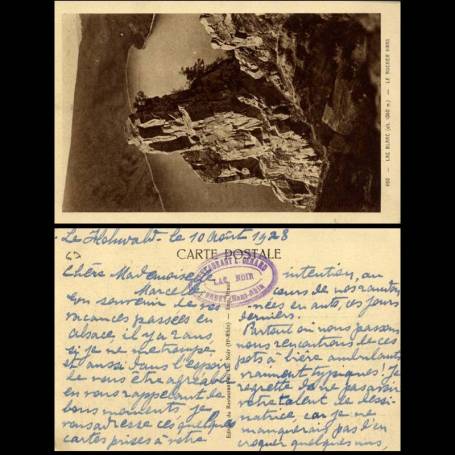 490 — LAC BLANC (alt. 1060 m.) — LE ROCHER HANS
Le Hohwald - le 10 Août 1928
CARTE POSTALE
RESTAURANT GÉRARD
LAC NOIR
ORBEY (Haut-Rhin)
Chère Mademoiselle
Marcelle
En souvenir de vos
vacances passées en
Alsace, il y a 2 ans
si je ne me trompe
et aussi dans l'espoir
de vous être agréable
en vous rappelant de
bons moments, je
vous adresse ces quelques
cartes prises à votre
Editions du Restaurant du Lac Noir (Ht-Rhin)
intention, au
cours de nos randon
nées en auto, ces jours
derniers.
Partout où nous passons
nous rencontrons de ces
pots à bière ambulants
vraiment typiques! Je
regrette de ne pas avoir
votre talent de dessi-
natrice, car je ne
manquerais pas d'en
croquer quelques uns,